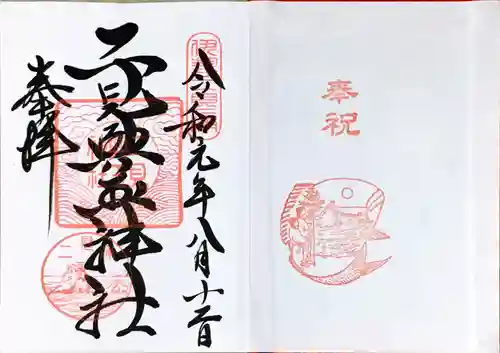 奉祝
令和元年八月十二日
二見興玉神社
奉拝